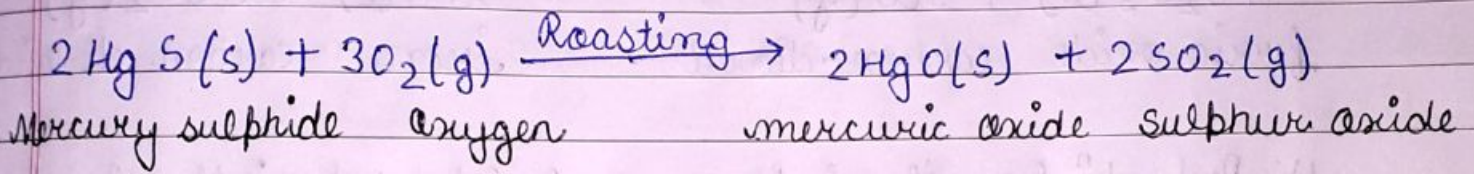 2HgS(s) + 3O₂(g) Roasting → 2HgO(s) + 2SO₂(g)
Mercury sulphide oxygen mercuric oxide sulphur oxide